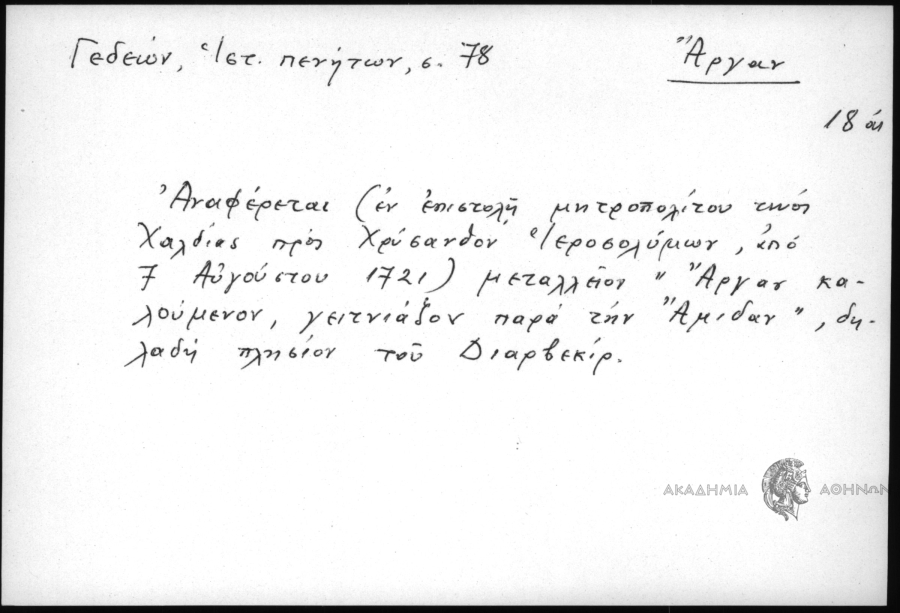 Γεδεών, Ἱστ. πενήτων, σ. 78
Ἄργαν
18 αἰ
Ἀναφέρεται (ἐν ἐπιστολῇ μητροπολίτου τινός
Χαλδίας πρός Χρύσανθον Ἱεροσολύμων, ἀπό
7 Αὐγούστου 1721) μεταλλεῖον "Ἄργαν κα-
λούμενον, γειτνιάζον παρά τήν Ἄμιδαν", δη-
λαδή πλησίον τοῦ Διαρβεκίρ.
ΑΚΑΔΗΜΙΑ ΑΘΗΝΩΝ